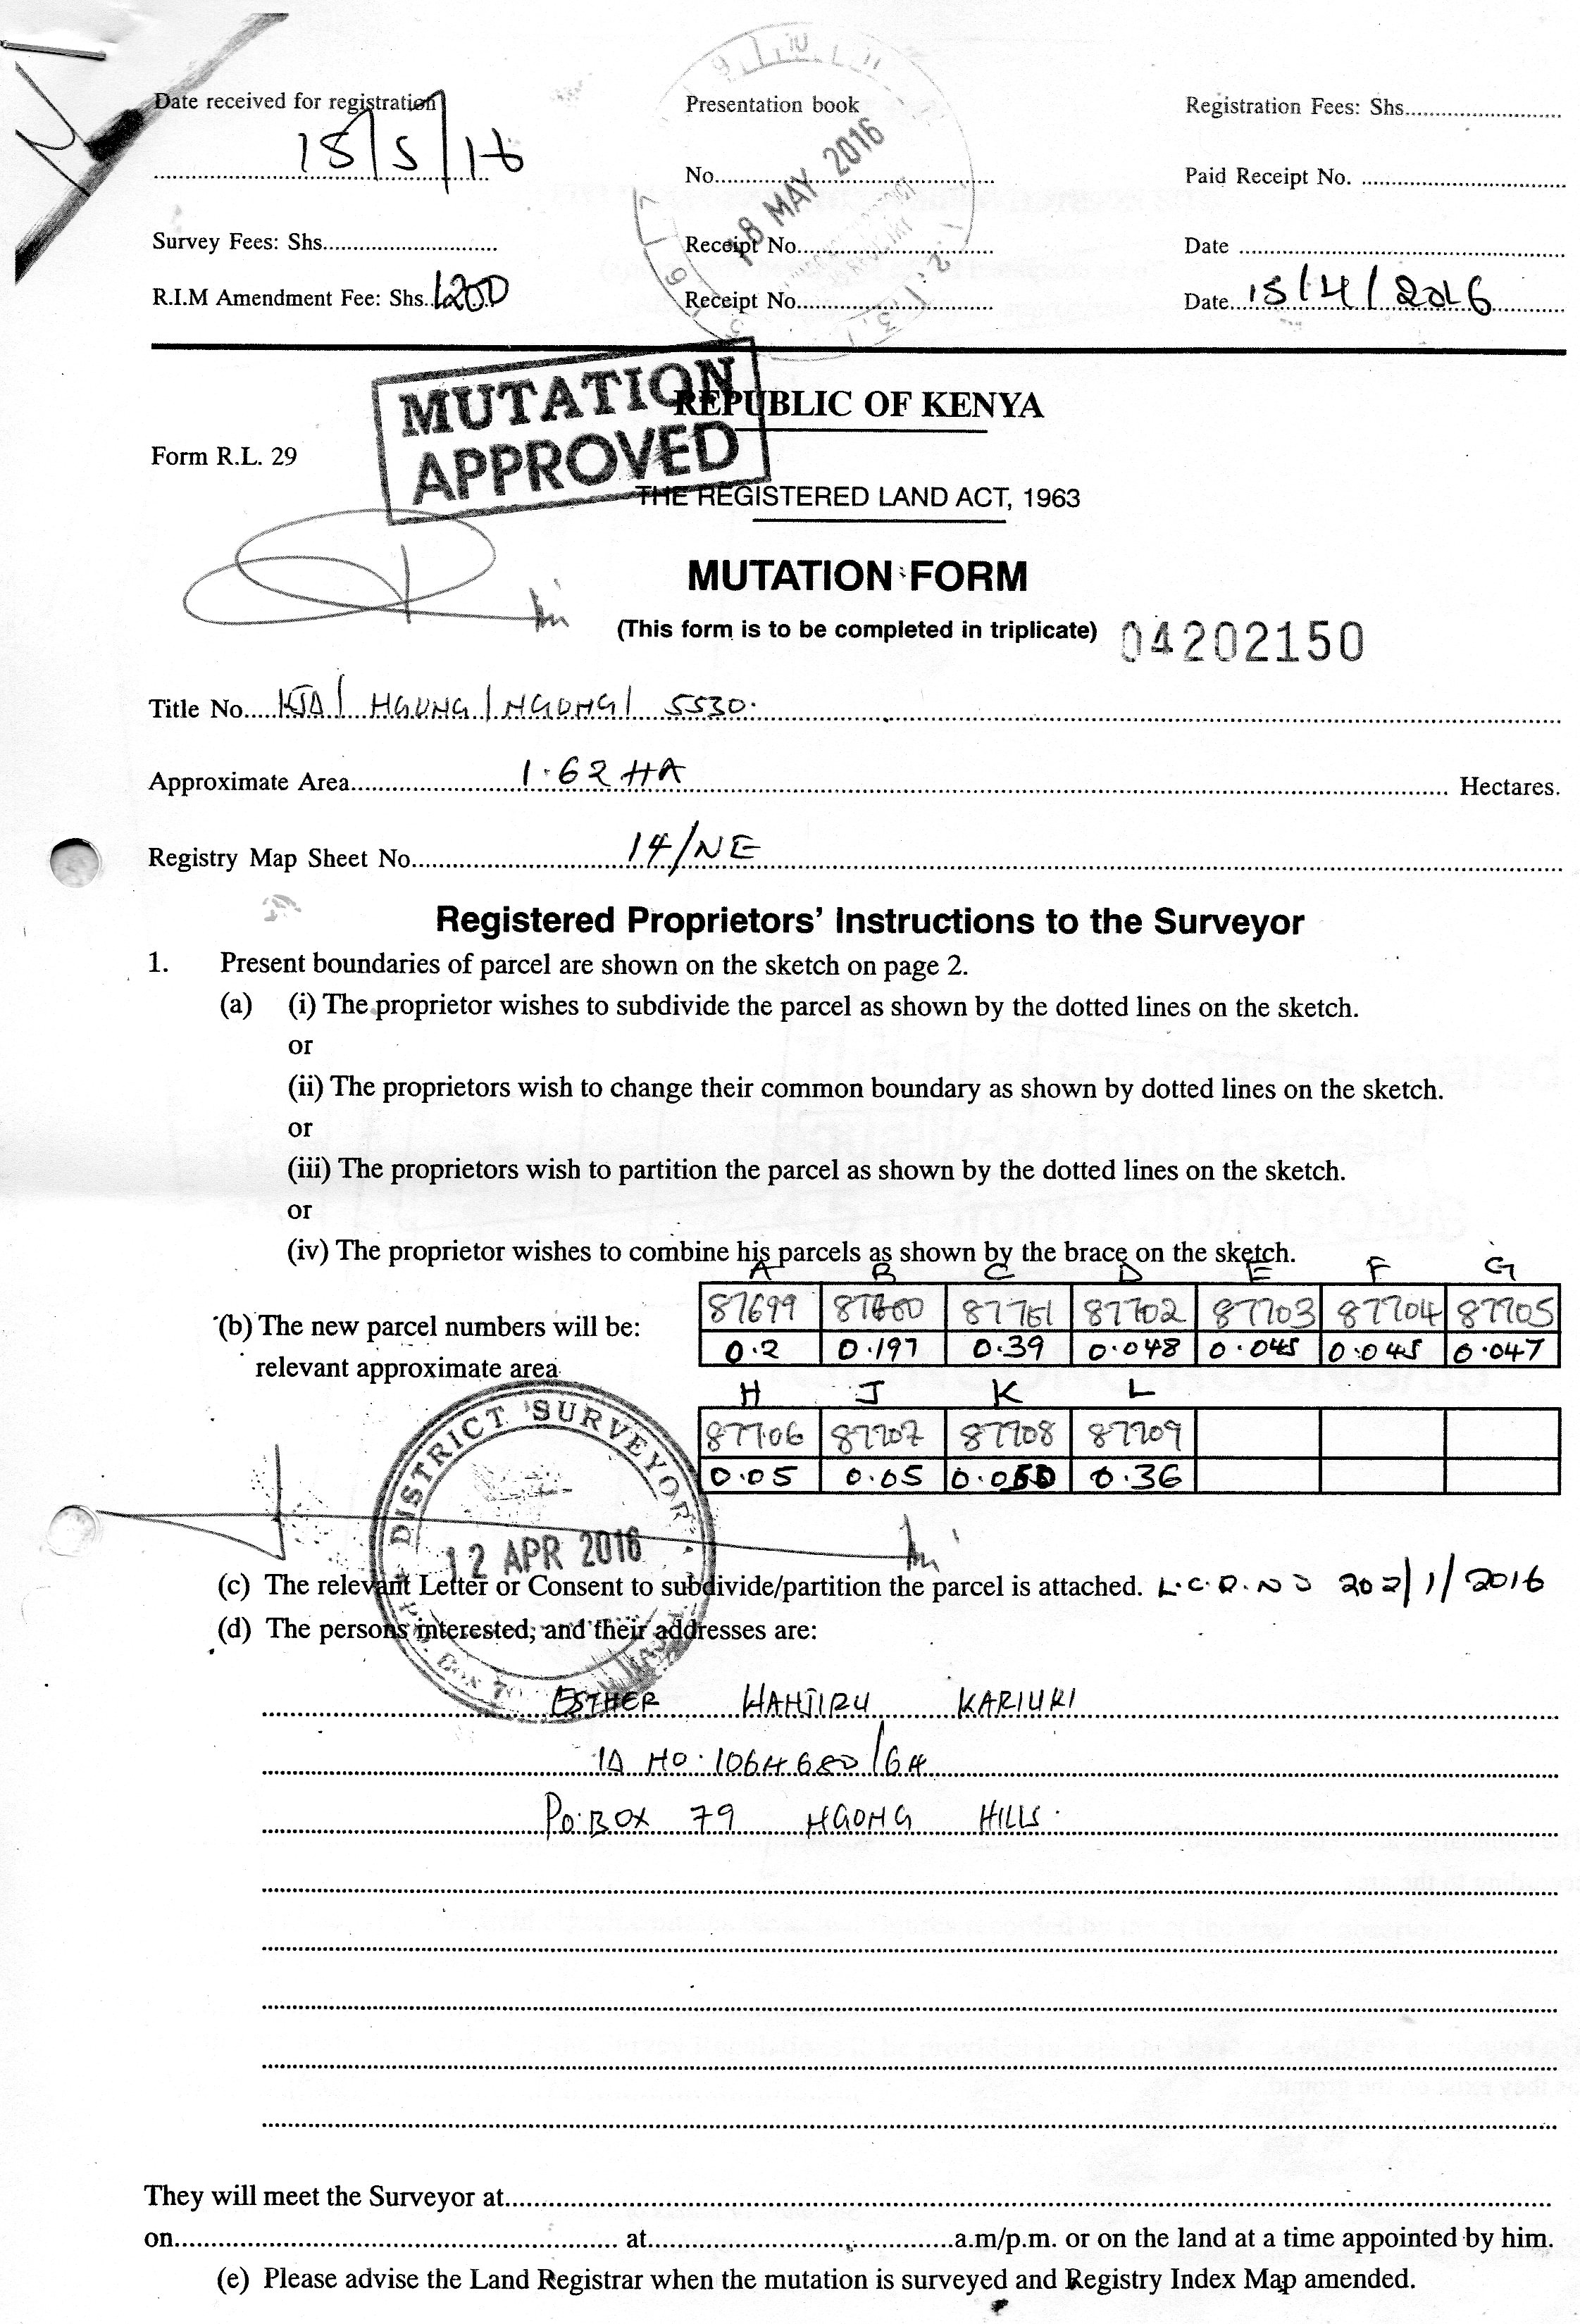 Date received for registration
18/5/16
Presentation book
Registration Fees: Shs
No
18 MAY 2016
Paid Receipt No.
Survey Fees: Shs
Receipt No
Date
R.I.M Amendment Fee: Shs. 1200
Receipt No
Date 15/4/2016
MUTATION APPROVED
REPUBLIC OF KENYA
Form R.L. 29
THE REGISTERED LAND ACT, 1963
MUTATION FORM
(This form is to be completed in triplicate) 04202150
Title No. KJD/ NGONG/NGONG/ 5530.
Approximate Area 1.62 HA Hectares.
Registry Map Sheet No. 14/NE
Registered Proprietors' Instructions to the Surveyor
1. Present boundaries of parcel are shown on the sketch on page 2.
(a) (i) The proprietor wishes to subdivide the parcel as shown by the dotted lines on the sketch.
or
(ii) The proprietors wish to change their common boundary as shown by dotted lines on the sketch.
or
(iii) The proprietors wish to partition the parcel as shown by the dotted lines on the sketch.
or
(iv) The proprietor wishes to combine his parcels as shown by the brace on the sketch.
A B C D E F G
(b) The new parcel numbers will be: 87699 87700 87701 87702 87703 87704 87705
relevant approximate area 0.2 0.197 0.39 0.048 0.045 0.045 0.047
H J K L
87706 87707 87708 87709
0.05 0.05 0.050 0.36
DISTRICT SURVEYOR
12 APR 2016
(c) The relevant Letter or Consent to subdivide/partition the parcel is attached. L.C.D.NO 202/1/2016
(d) The persons interested, and their addresses are:
ESTHER WANJIRU KARIUKI
ID NO: 1064680/64
P.O. BOX 79 NGONG HILLS.
They will meet the Surveyor at
on at a.m/p.m. or on the land at a time appointed by him.
(e) Please advise the Land Registrar when the mutation is surveyed and Registry Index Map amended.